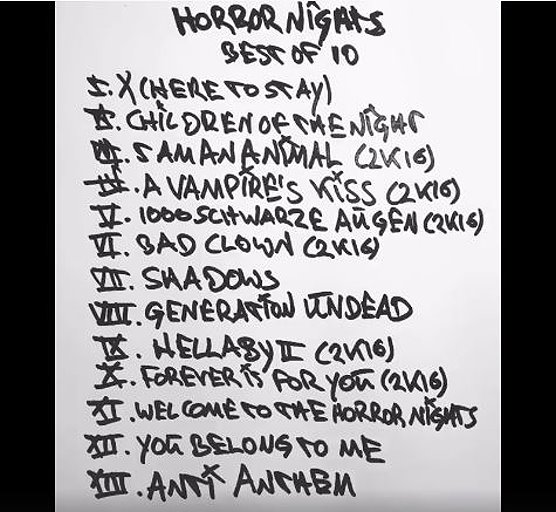 HORROR NIGHTS
BEST OF 10
I. X (HERE TO STAY)
II. CHILDREN OF THE NIGHT
III. I AM AN ANIMAL (2K16)
IV. A VAMPIRE'S KISS (2K16)
V. 1000 SCHWARZE AUGEN (2K16)
VI. BAD CLOWN (2K16)
VII. SHADOWS
VIII. GENERATION UNDEAD
IX. HELLABY II (2K16)
X. FOREVER IS FOR YOU (2K16)
XI. WELCOME TO THE HORROR NIGHTS
XII. YOU BELONG TO ME
XIII. ANTI ANTHEM